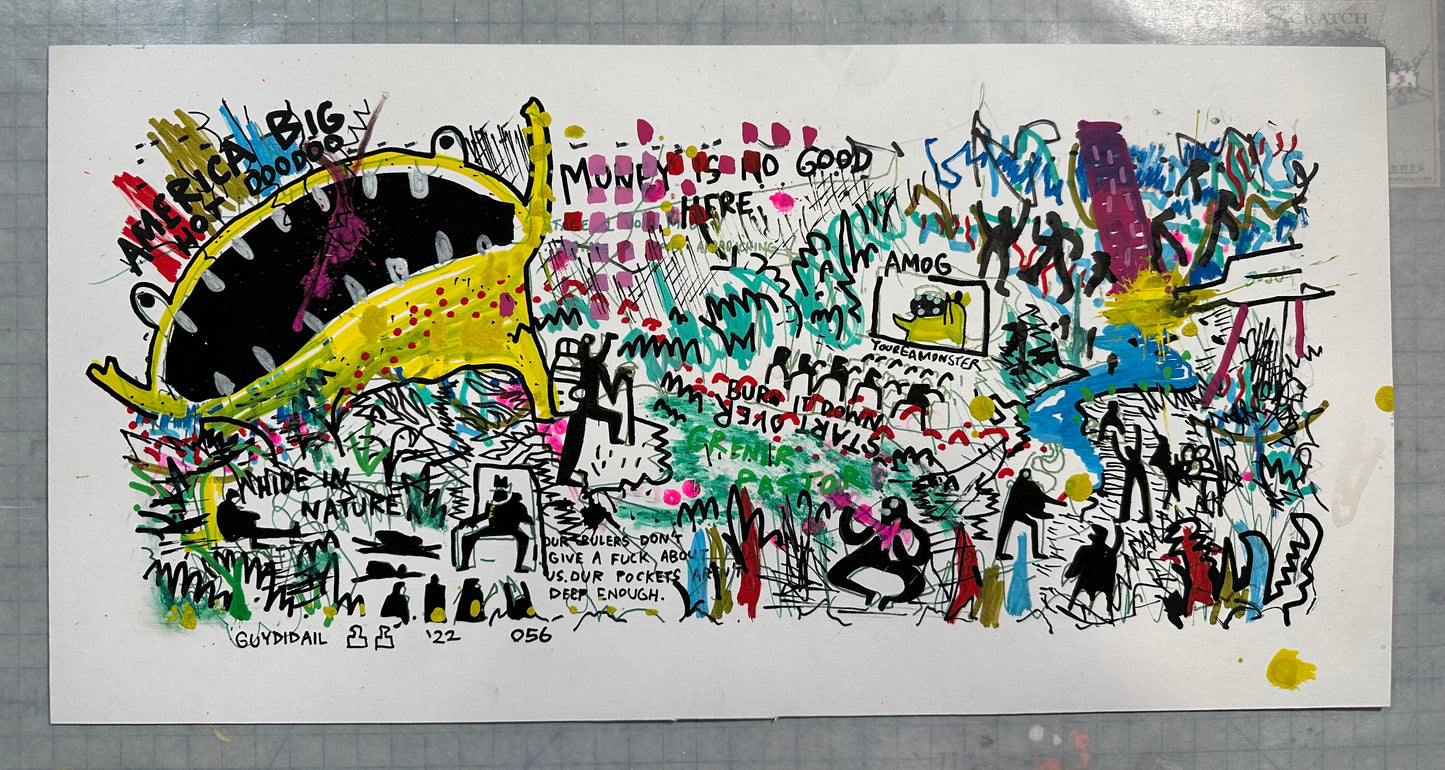 AMERICA BIG
HOT DOODOO
MUNEY IS NO GOOD
HERE
AMOG
YOUREAMONSTER
BURN IT DOWN
START OVER
GRENIR
PASTOR
HIDE IN
NATURE
OUR RULERS DON'T
GIVE A FUCK ABOUT
US. OUR POCKETS
DEEP ENOUGH.
GUYDIDAIL '22 056
SCRATCH